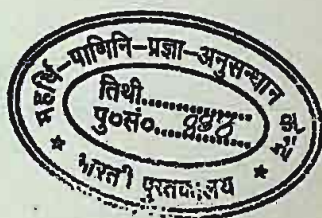 महर्षि-पाणिनि-प्रज्ञा-अनुसन्धान केन्द्र
तिथी..............
पु०सं०
★ भारती पुस्तकालय ★